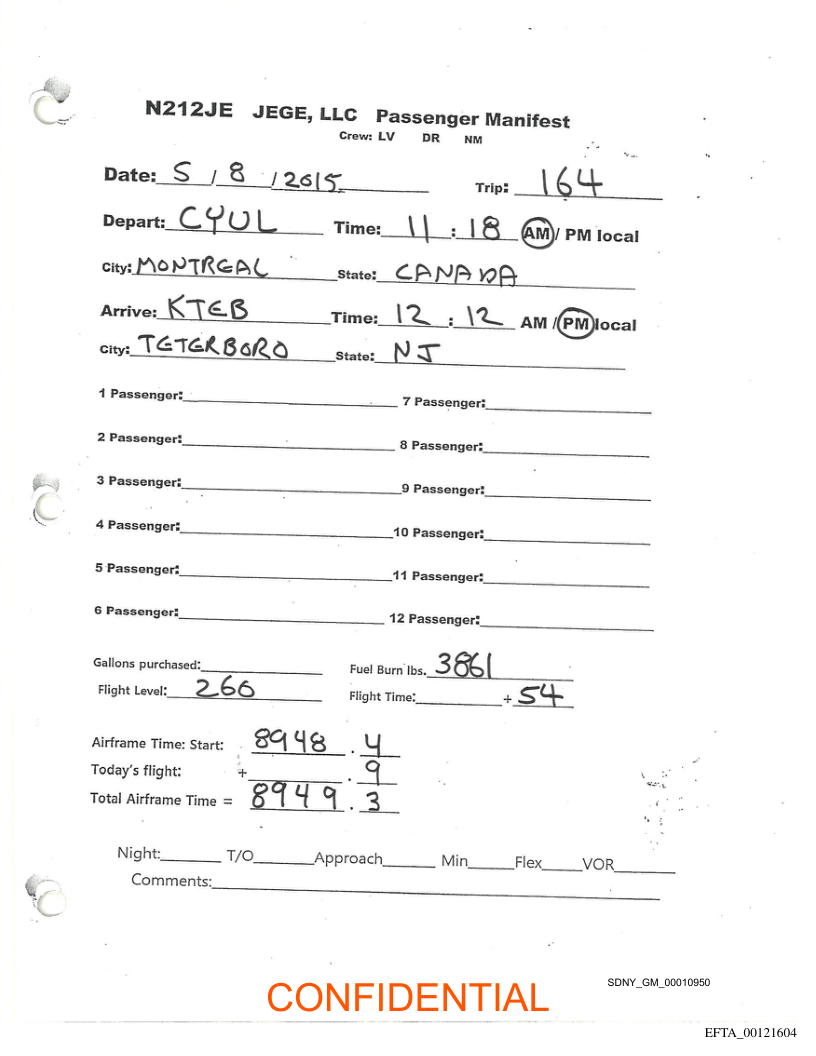 N212JE JEGE, LLC Passenger Manifest
Crew: LV DR NM
Date: 5 / 8 / 2015 Trip: 164
Depart: CYUL Time: 11 : 18 AM / PM local
City: MONTREAL State: CANADA
Arrive: KTEB Time: 12 : 12 AM / PM local
City: TETERBORO State: NJ
1 Passenger: 7 Passenger:
2 Passenger: 8 Passenger:
3 Passenger: 9 Passenger:
4 Passenger: 10 Passenger:
5 Passenger: 11 Passenger:
6 Passenger: 12 Passenger:
Gallons purchased: Fuel Burn lbs. 3861
Flight Level: 260 Flight Time: + 54
Airframe Time: Start: 8948 . 4
Today's flight: + . 9
Total Airframe Time = 8949 . 3
Night: T/O Approach Min Flex VOR
Comments:
SDNY_GM_00010950
CONFIDENTIAL
EFTA_00121604